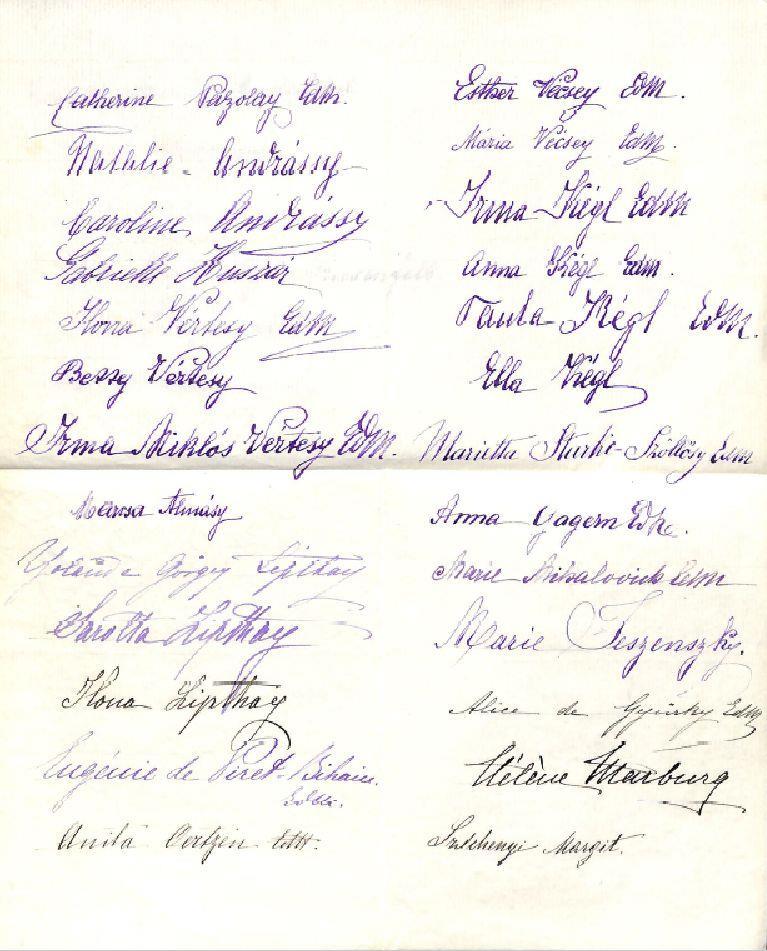 Catherine Pázolay EdM.
Nathalie Andrássy
Caroline Andrássy
Gabrielle Huszár
Ilona Vértesy EdM
Bessy Vértesy
Irma Miklós Vértesy EdM.
Almásy
Yolande Görgey Lipthay
Sarolta Lipthay
Ilona Lipthay
Eugénie de Piret-Bihain
EdM.
Anita Oertzen EdM.
Esther Vécsey EdM.
Mária Vécsey EdM.
Irma Kégl EdM
Anna Kégl EdM.
Paula Kégl EdM.
Ella Kégl
Marietta EdM
Anna Gagern
Marie Mihalovich EdM
Marie Jeszenszky.
Alice de Gyürky EdM
Hélène Marburg
Széchenyi Margit.